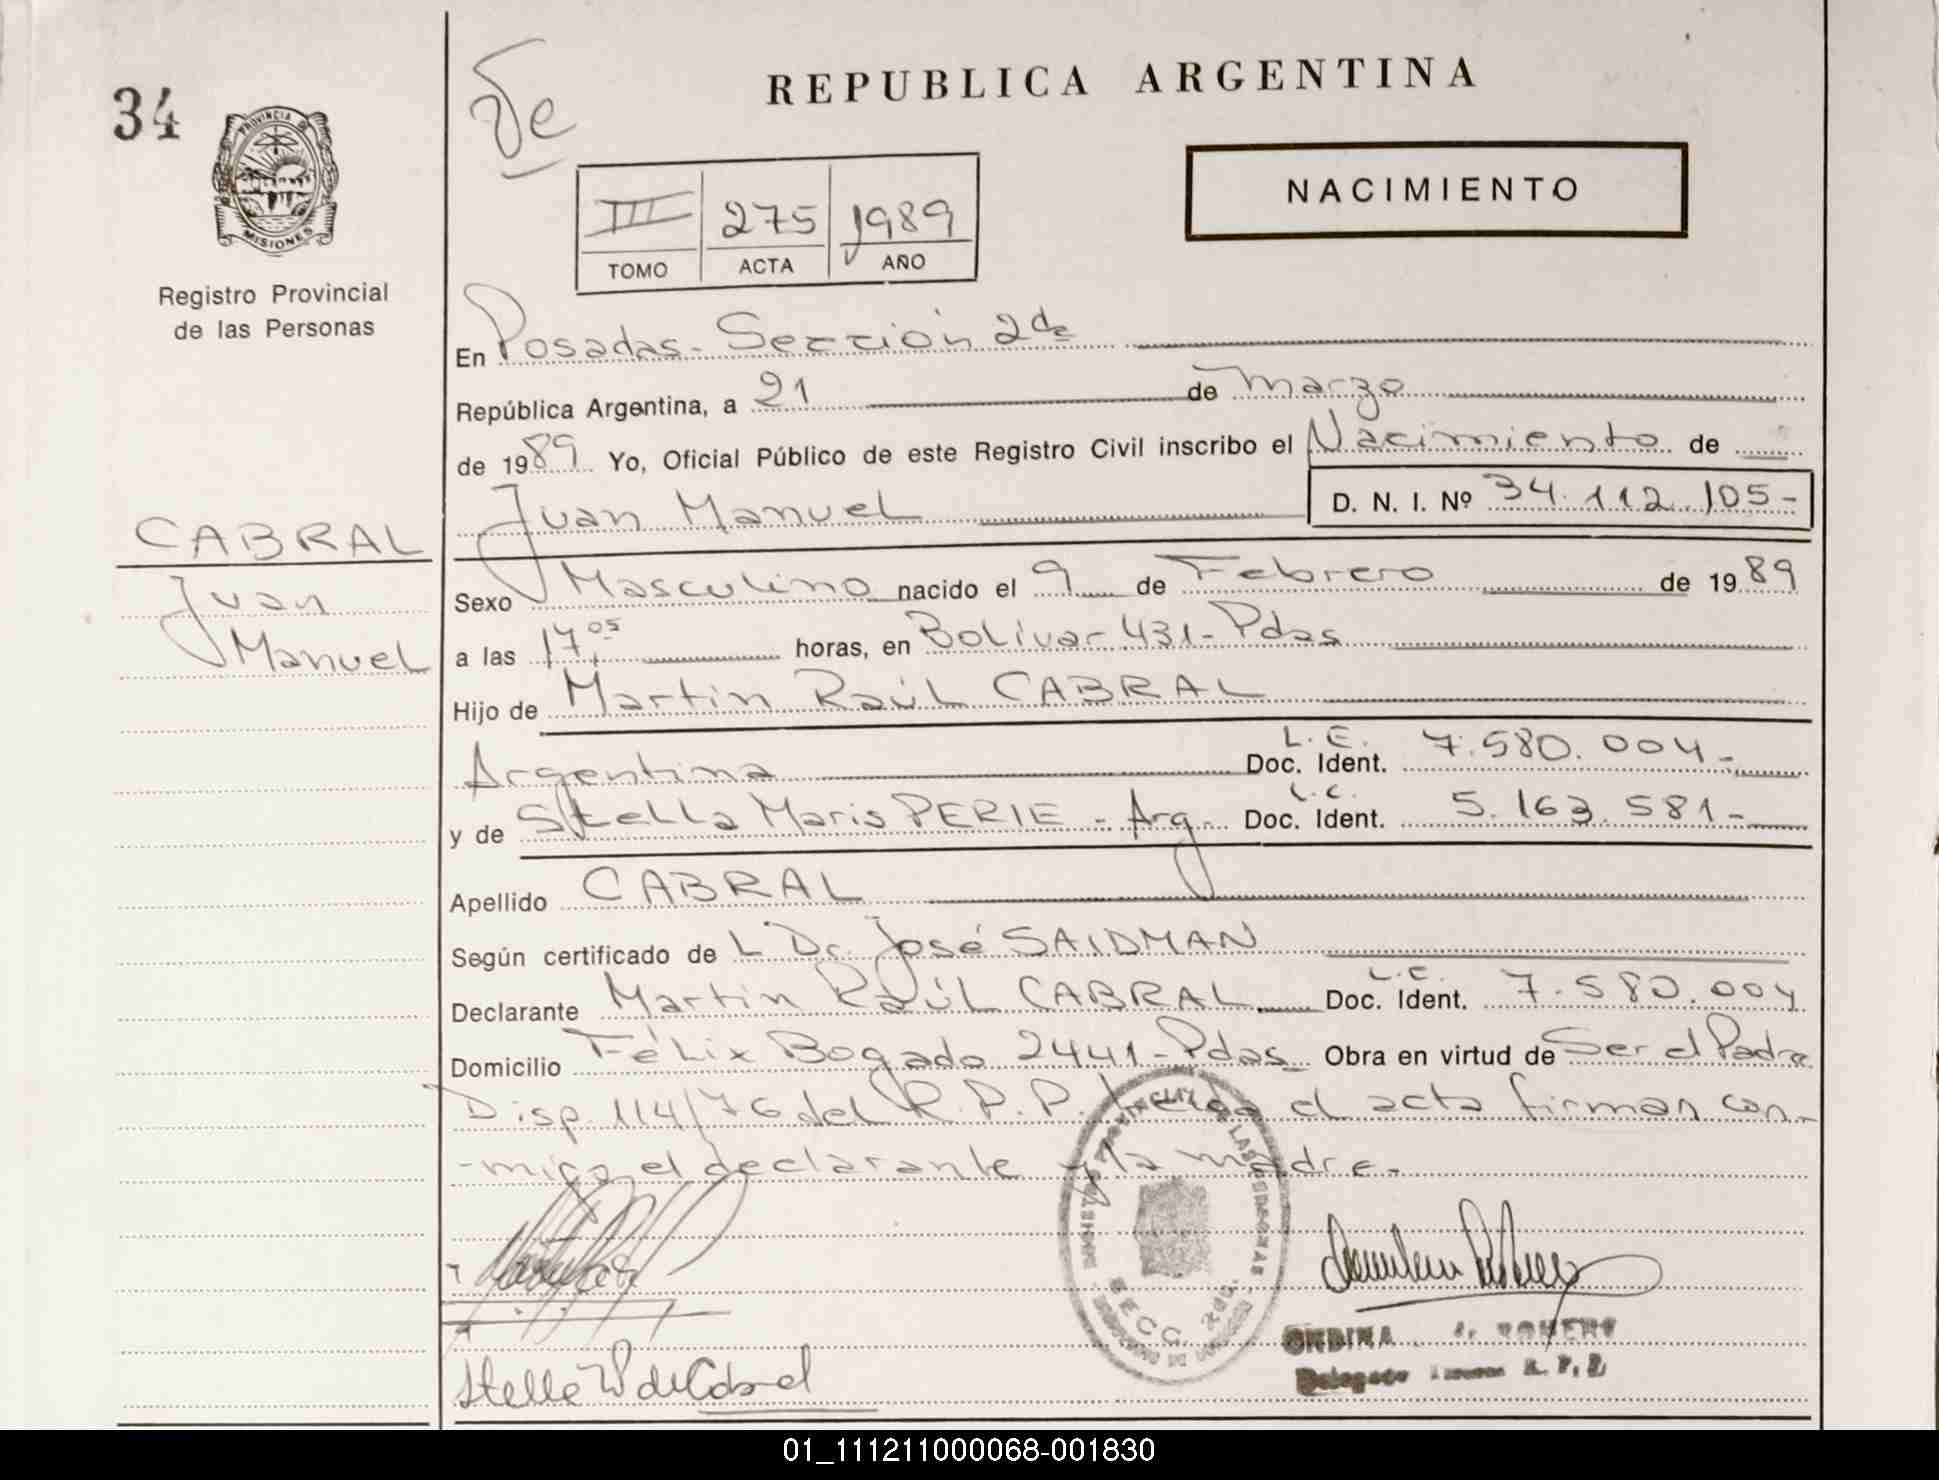 34
PROVINCIA DE
MISIONES
Registro Provincial
de las Personas
REPUBLICA ARGENTINA
NACIMIENTO
III 275 1989
TOMO ACTA AÑO
En Posadas - Sección 2da
República Argentina, a 21 de Marzo
de 1989 Yo, Oficial Público de este Registro Civil inscribo el Nacimiento de
Juan Manuel D. N. I. Nº 34.112.105-
CABRAL
Juan
Manuel
Sexo Masculino nacido el 9 de Febrero de 1989
a las 17,05 horas, en Bolivar 431- Pdas
Hijo de Martin Raúl CABRAL
Argentina L.E. Doc. Ident. 7.580.004-
y de Stella Maris PERIE - Arg. L.C. Doc. Ident. 5.163.581-
Apellido CABRAL
Según certificado de L Dr. José SAIDMAN
Declarante Martin Raúl CABRAL L.E. Doc. Ident. 7.580.004
Domicilio Félix Bogado 2441- Pdas Obra en virtud de Ser el Padre
Disp. 114/76 del R.P.P. Leida el acta firman con-
-migo el declarante y la madre.
SECC. 2da.
ONDINA de ROMERO
Delegado R.P.P.
01_111211000068-001830